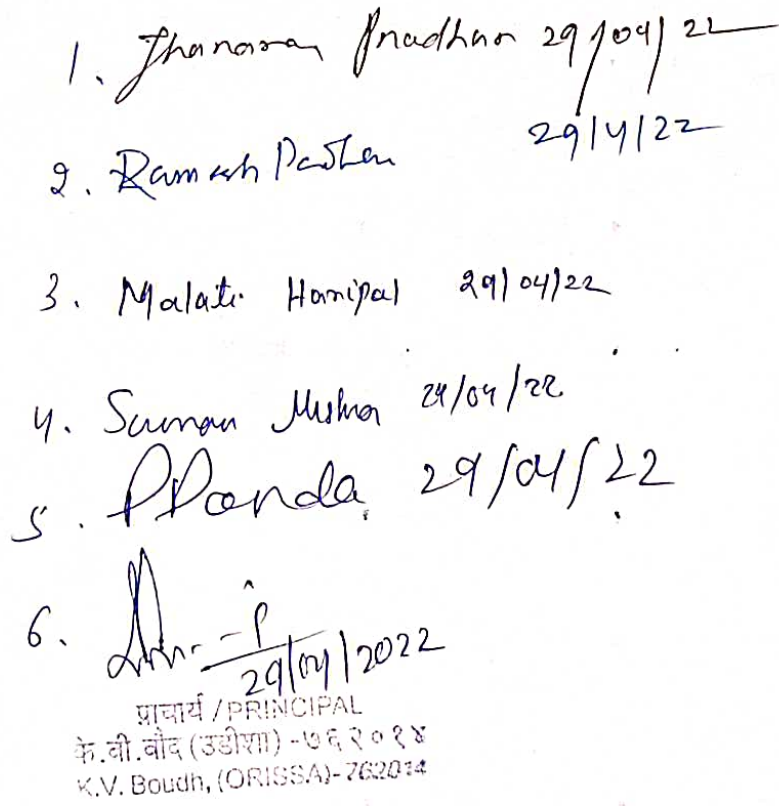 1. Jhanaran Pradhan 29/04/22
2. Ramesh Padhan 29/4/22
3. Malati Hanipal 29/04/22
4. Suman Mishra 29/04/22
5. PPanda 29/04/22
6. 29/04/2022
प्राचार्य / PRINCIPAL
के.वी.बौद (उडीशा) - ७६२०१४
K.V. Boudh, (ORISSA)- 762014